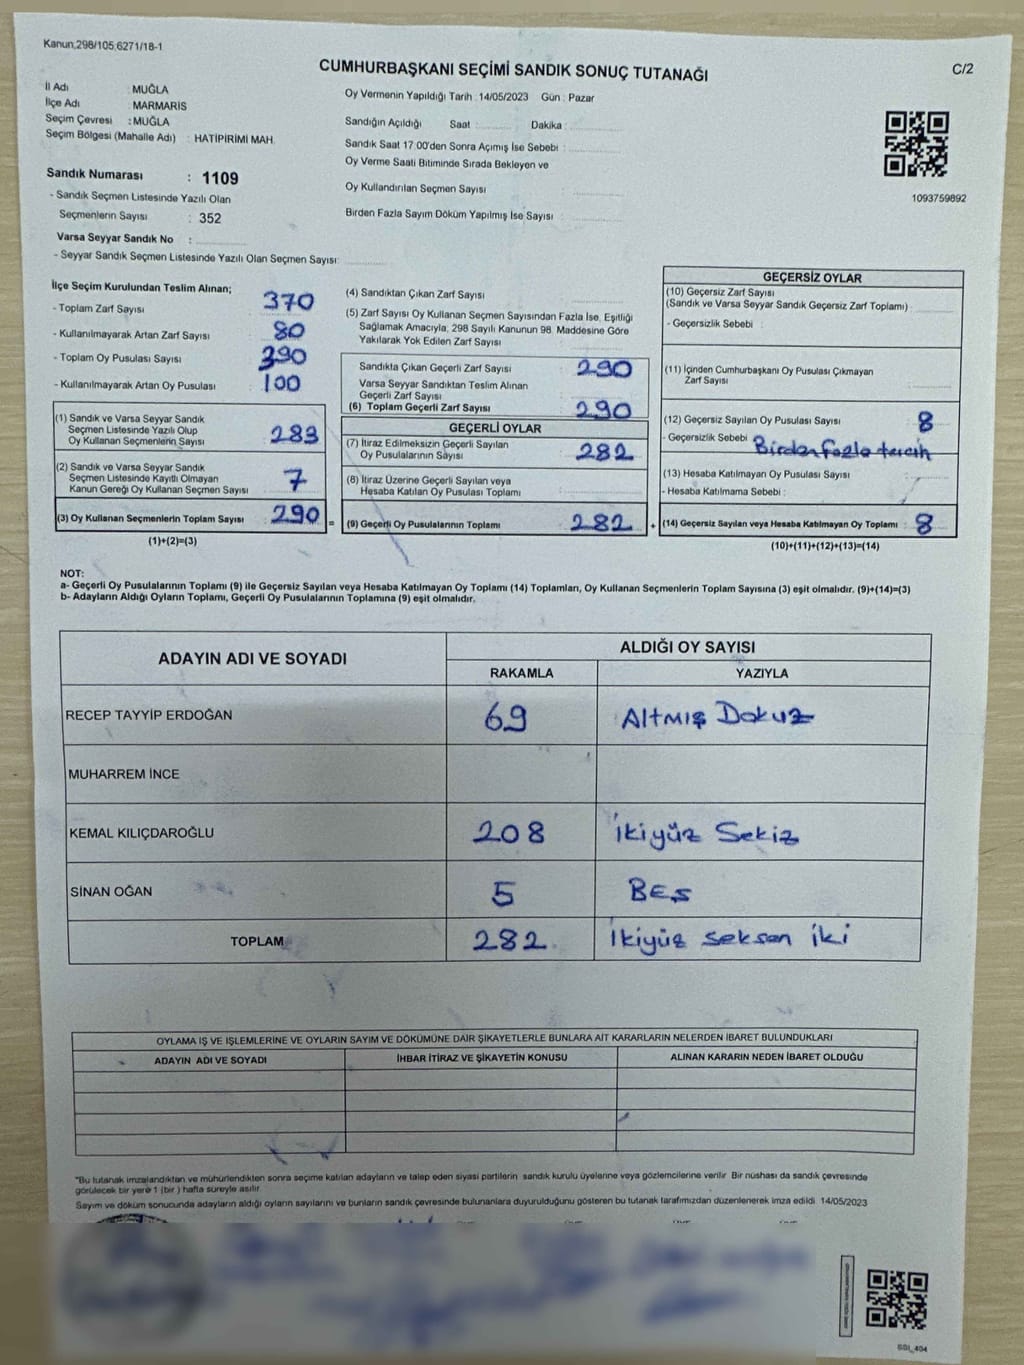 Kanun,298/105,6271/18-1
CUMHURBAŞKANI SEÇİMİ SANDIK SONUÇ TUTANAĞI
C/2
İl Adı : MUĞLA
İlçe Adı : MARMARİS
Seçim Çevresi : MUĞLA
Seçim Bölgesi (Mahalle Adı) : HATİPİRİMİ MAH.
Sandık Numarası : 1109
- Sandık Seçmen Listesinde Yazılı Olan
Seçmenlerin Sayısı : 352
Varsa Seyyar Sandık No :
- Seyyar Sandık Seçmen Listesinde Yazılı Olan Seçmen Sayısı:
Oy Vermenin Yapıldığı Tarih : 14/05/2023 Gün : Pazar
Sandığın Açıldığı Saat : Dakika :
Sandık Saat 17:00'den Sonra Açımış İse Sebebi :
Oy Verme Saati Bitiminde Sırada Bekleyen ve
Oy Kullandırılan Seçmen Sayısı :
Birden Fazla Sayım Döküm Yapılmış İse Sayısı :
1093759892
İlçe Seçim Kurulundan Teslim Alınan;
- Toplam Zarf Sayısı : 370
- Kullanılmayarak Artan Zarf Sayısı : 80
- Toplam Oy Pusulası Sayısı : 390
- Kullanılmayarak Artan Oy Pusulası : 100
(1) Sandık ve Varsa Seyyar Sandık
Seçmen Listesinde Yazılı Olup
Oy Kullanan Seçmenlerin Sayısı : 283
(2) Sandık ve Varsa Seyyar Sandık
Seçmen Listesinde Kayıtlı Olmayan
Kanun Gereği Oy Kullanan Seçmen Sayısı : 7
(3) Oy Kullanan Seçmenlerin Toplam Sayısı : 290 =
(1)+(2)=(3)
(4) Sandıktan Çıkan Zarf Sayısı :
(5) Zarf Sayısı Oy Kullanan Seçmen Sayısından Fazla İse, Eşitliği
Sağlamak Amacıyla, 298 Sayılı Kanunun 98. Maddesine Göre
Yakılarak Yok Edilen Zarf Sayısı :
Sandıkta Çıkan Geçerli Zarf Sayısı : 290
Varsa Seyyar Sandıktan Teslim Alınan
Geçerli Zarf Sayısı :
(6) Toplam Geçerli Zarf Sayısı : 290
GEÇERLİ OYLAR
(7) İtiraz Edilmeksizin Geçerli Sayılan
Oy Pusulalarının Sayısı : 282
(8) İtiraz Üzerine Geçerli Sayılan veya
Hesaba Katılan Oy Pusulası Toplamı :
(9) Geçerli Oy Pusulalarının Toplamı : 282 +
GEÇERSİZ OYLAR
(10) Geçersiz Zarf Sayısı
(Sandık ve Varsa Seyyar Sandık Geçersiz Zarf Toplamı) :
- Geçersizlik Sebebi :
(11) İçinden Cumhurbaşkanı Oy Pusulası Çıkmayan
Zarf Sayısı :
(12) Geçersiz Sayılan Oy Pusulası Sayısı : 8
- Geçersizlik Sebebi : Birden fazla tercih
(13) Hesaba Katılmayan Oy Pusulası Sayısı :
- Hesaba Katılmama Sebebi :
(14) Geçersiz Sayılan veya Hesaba Katılmayan Oy Toplamı : 8
(10)+(11)+(12)+(13)=(14)
NOT:
a- Geçerli Oy Pusulalarının Toplamı (9) ile Geçersiz Sayılan veya Hesaba Katılmayan Oy Toplamı (14) Toplamları, Oy Kullanan Seçmenlerin Toplam Sayısına (3) eşit olmalıdır. (9)+(14)=(3)
b- Adayların Aldığı Oyların Toplamı, Geçerli Oy Pusulalarının Toplamına (9) eşit olmalıdır.
ADAYIN ADI VE SOYADI ALDIĞI OY SAYISI
RAKAMLA YAZIYLA
RECEP TAYYİP ERDOĞAN 69 Altmış Dokuz
MUHARREM İNCE
KEMAL KILIÇDAROĞLU 208 İkiyüz Sekiz
SİNAN OĞAN 5 BEŞ
TOPLAM 282 İkiyüz seksen iki
OYLAMA İŞ VE İŞLEMLERİNE VE OYLARIN SAYIM VE DÖKÜMÜNE DAİR ŞİKAYETLERLE BUNLARA AİT KARARLARIN NELERDEN İBARET BULUNDUKLARI
ADAYIN ADI VE SOYADI İHBAR İTİRAZ VE ŞİKAYETİN KONUSU ALINAN KARARIN NEDEN İBARET OLDUĞU
"Bu tutanak imzalandıktan ve mühürlendikten sonra seçime katılan adayların ve talep eden siyasi partilerin sandık kurulu üyelerine veya gözlemcilerine verilir. Bir nüshası da sandık çevresinde
görülecek bir yere 1 (bir ) hafta süreyle asılır.
Sayım ve döküm sonucunda adayların aldığı oyların sayılarını ve bunların sandık çevresinde bulunanlara duyurulduğunu gösteren bu tutanak tarafımızdan düzenlenerek imza edildi. 14/05/2023